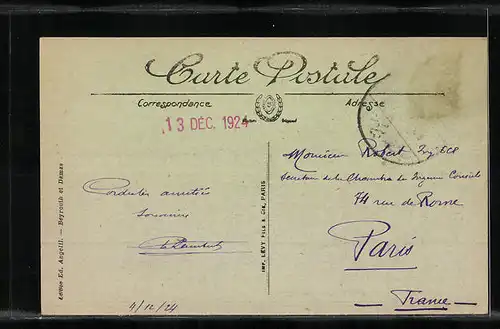 Carte Postale
Correspondance
Adresse
13 DÉC. 1924
Monsieur Robert
Secrétaire de la Chambre des Ingénieurs Conseils
74 rue de Rome
Paris
France
Cordiales amitiés
Souvenirs
4/12/24
Édit. Ed. Angelil. — Beyrouth et Damas
IMP. LÉVY FILS & Cie, PARIS